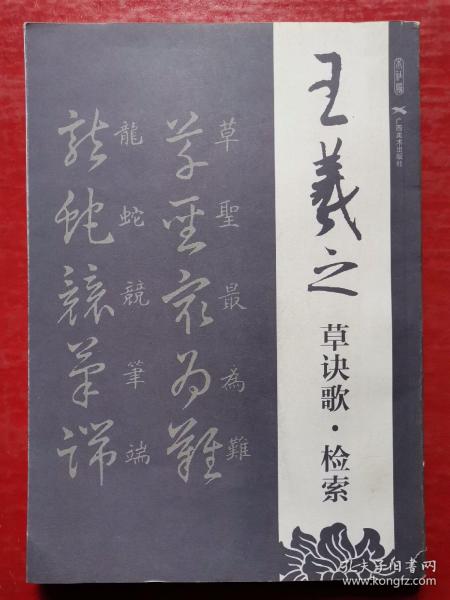 王羲之
草诀歌·检索
广西美术出版社
草聖最為難
草聖最為難
龍蛇競筆端
龍蛇競筆端
孔夫子旧书网
www.kongfz.com